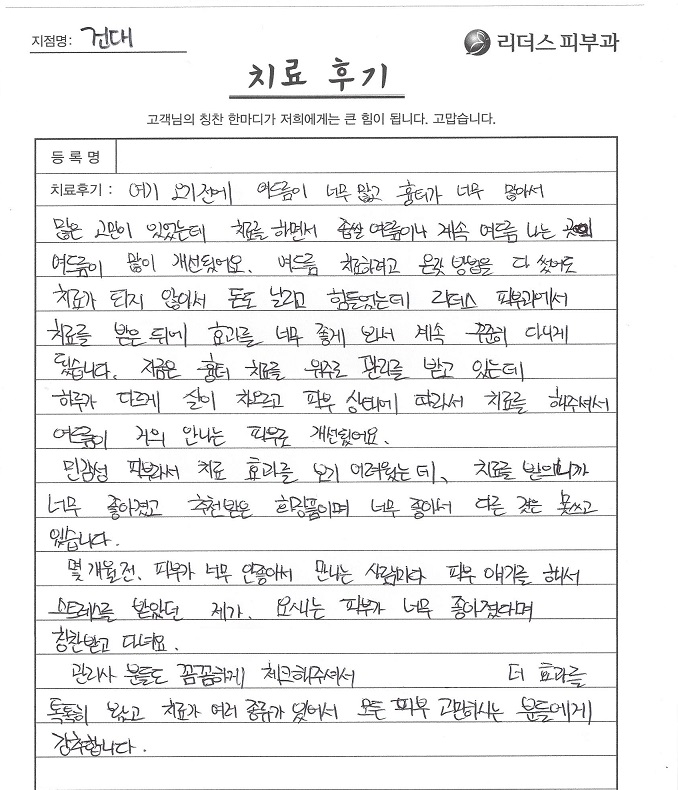 지점명: 건대
리더스피부과
치료 후기
고객님의 칭찬 한마디가 저희에게는 큰 힘이 됩니다. 고맙습니다.
등록명
치료후기 : 여기 오기전에 여드름이 너무 많고 흉터가 너무 많아서
많은 고민이 있었는데 치료를 하면서 좁쌀 여드름이나 계속 여드름 나는 곳의
여드름이 많이 개선됬어요. 여드름 치료하려고 온갖 방법을 다 썼어도
치료가 되지 않아서 돈도 날리고 힘들었는데 리더스 피부과에서
치료를 받은 뒤에 효과를 너무 좋게 봐서 계속 꾸준히 다니게
됬습니다. 지금은 흉터 치료를 위주로 관리를 받고 있는데
하루가 다르게 살이 차오르고 피부 상태에 따라서 치료를 해주셔서
여드름이 거의 안나는 피부로 개선됬어요.
민감성 피부라서 치료 효과를 보기 어려웠는데, 치료를 받으니까
너무 좋아졌고 추천받은 화장품이며 너무 좋아서 다른 것은 못쓰고
있습니다.
몇 개월전, 피부가 너무 안좋아서 만나는 사람마다 피부 얘기를 해서
스트레스를 받았던 제가, 요새는 피부가 너무 좋아졌다며
칭찬받고 다녀요.
관리사 분들도 꼼꼼하게 체크해주셔서 더 효과를
톡톡히 봤고 치료가 여러 종류가 있어서 모든 피부 고민하시는 분들에게
강추합니다.